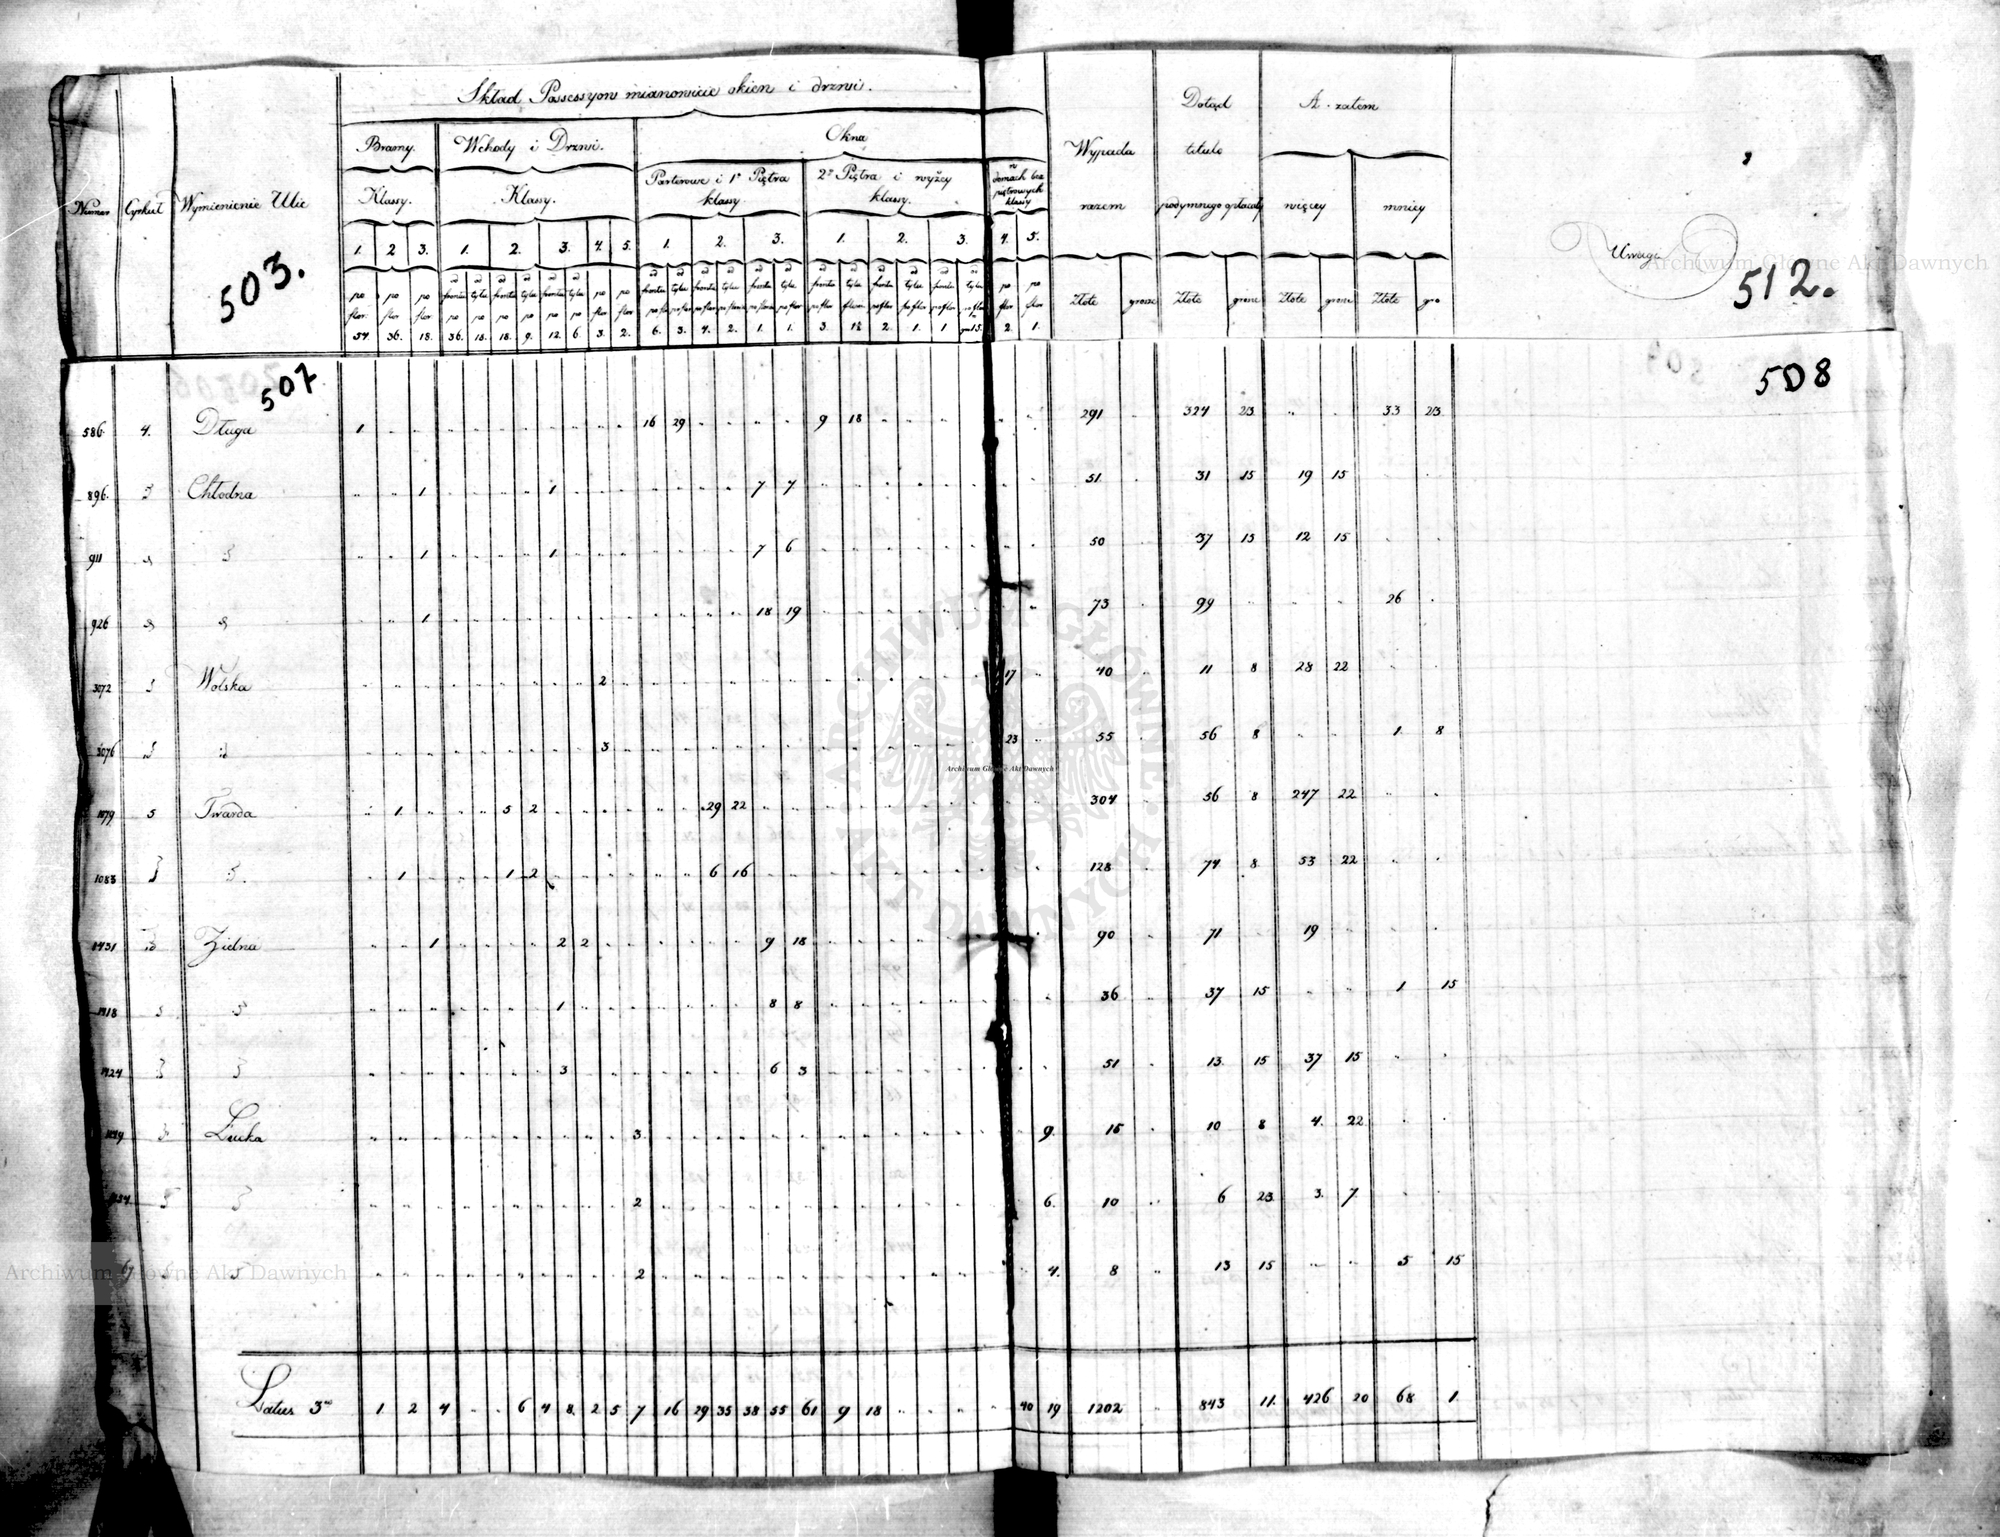 Skład Possessyow mianowicie okien i drzwi.
Bramy. Wchody i Drzwi. Okna
Parterowe i 1º Piętra klassy. 2º Piętra i wyżey klassy. w domach bez piętrowych klassy
Numer Cyrkuł Wymienienie Ulic Klassy. Klassy.
Wypada razem Dotąd titulo podymnego opłacały A zatem więcey mniey Uwaga
503. 512.
1. 2 3. 1. 2. 3. 4. 5. 1. 2. 3. 1. 2. 3. 4. 5.
złote grosze złote grosze złote grosze złote gro
54. 36. 18. 36. 18. 18. 9. 12. 6. 3. 2. 6. 3. 4. 2. 1. 1. 3. 1½ 2. 1. 1 gro 15. 2. 1.
507 508
586. 4. Długa 1 16 29 9 18 291 324 23 33 23
896. Chłodna 1 1 7 7 51 31 15 19 15
911 1 1 7 6 50 37 15 12 15
926 1 18 19 73 99 26
3072 Wolska 2 17 40 11 8 28 22
3076 3 23 55 56 8 1 8
1079 5 Twarda 1 5 2 29 22 304 56 8 247 22
1083 1 1 2 6 16 128 74 8 53 22
1431 Zielna 1 2 2 9 18 90 71 19
1418 1 8 8 36 37 15 1 15
1424 3 6 3 51 13 15 37 15
Łucka 3 9 15 10 8 4 22
2 6 10 6 23 3 7
2 4 8 13 15 5 15
Latus 3 1 2 4 6 4 8 2 5 7 16 29 35 38 55 61 9 18 40 19 1202 843 11 426 20 68 1
Archiwum Główne Akt Dawnych
Archiwum Główne Akt Dawnych
ARCHIWUM GŁÓWNE AKT DAWNYCH
Archiwum Główne Akt Dawnych